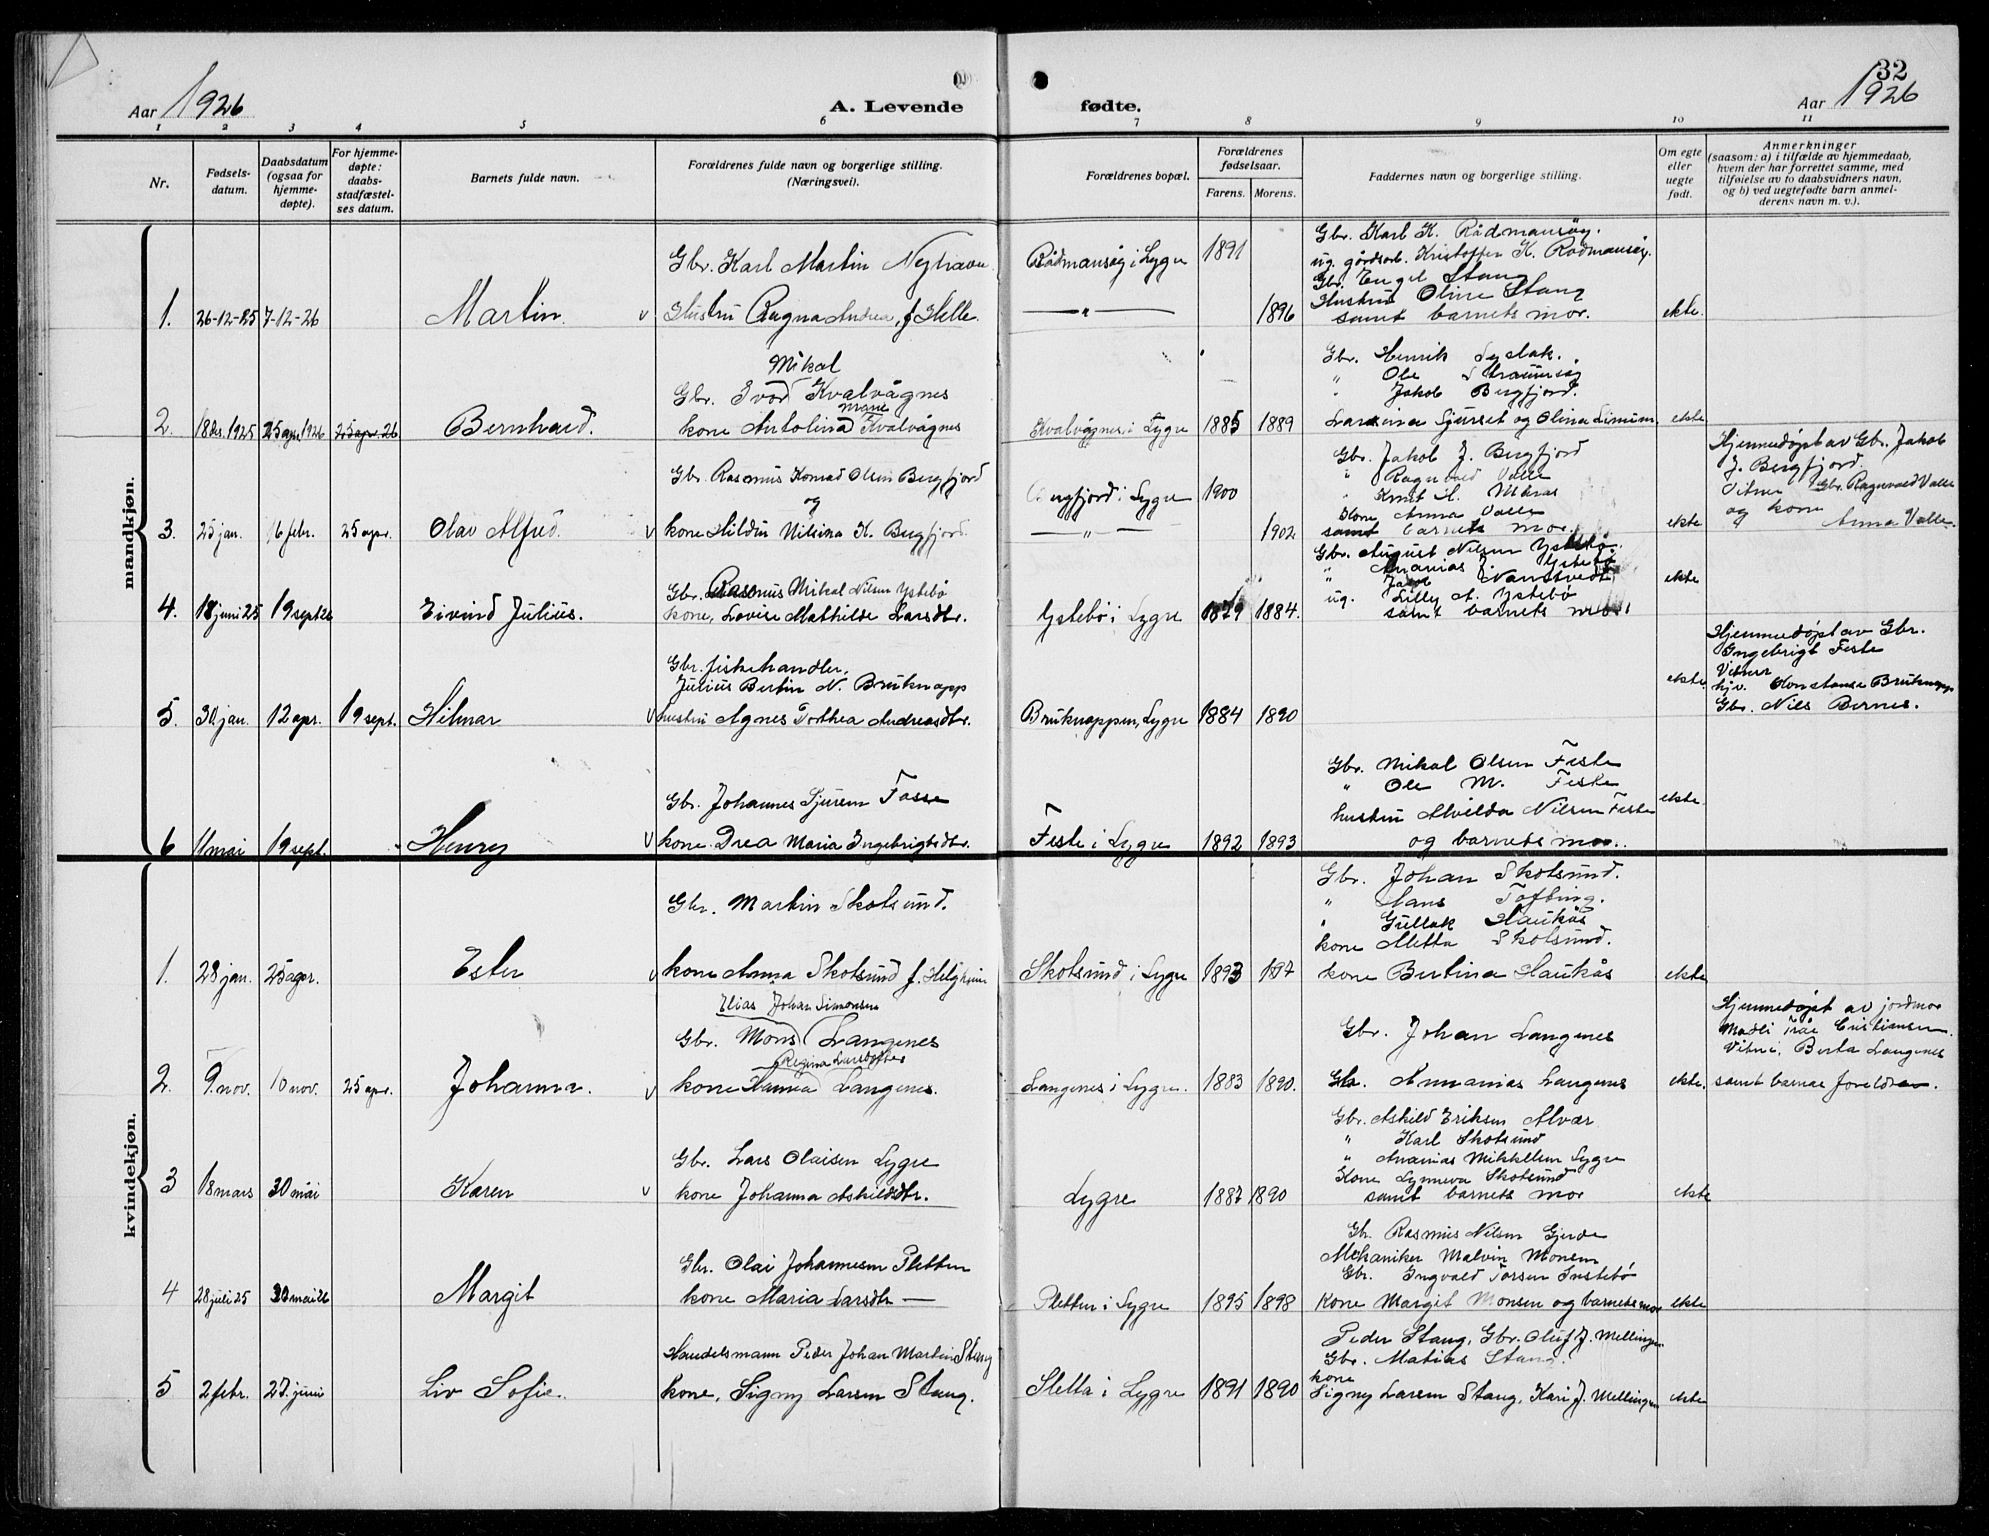 32
Aar 1926
A. Levende
fødte.
Aar 1926
1 2 3 4 5 6 7 8 9 10 11
Nr.
Fødsels-
datum.
Daabsdatum
(ogsaa for
hjemme-
døpte).
For hjemme-
døpte:
daabs-
stadfæstel-
ses datum.
Barnets fulde navn.
Forældrenes fulde navn og borgerlige stilling.
(Næringsvei).
Forældrenes bopæl.
Forældrenes
fødselsaar.
Farens. Morens.
Faddernes navn og borgerlige stilling.
Om egte
eller
uegte
født.
Anmerkninger
(saasom: a) i tilfælde av hjemmedaab,
hvem der har forrettet samme, med
tilføielse av to daabsvidners navn,
og b) ved uegtefødte barn anmel-
derens navn m. v.).
mandkjøn.
Gbr. Karl Martin
Rådmansøy i Lygre 1891
Gbr. Karl K. Rådmansøy.
ug. gårdsarb. Kristoffer K. Rådmansøy.
Gbr. Engel Stang
Hustru Oline Stang
1. 26-12-25 7-12-26 Martin. v Hustru Ragna Andrea, f Helle. — " — 1896 samt barnets mor. ekte.
Mikal
Gbr. Ivor Kvalvågnes
Gbr. Henrik
" Ole
Jakob Bergfjord.
2. 18des. 1925 25 apr. 1926 25 apr. 26 Bernhard. kone Antolina Marie Kvalvågnes Kvalvågnes i Lygre 1885 1889 og Olina ekte
Gbr. Rasmus Konrad Olsen Bergfjord
og
Bergfjord i Lygre 1900
Gbr. Jakob J. Bergfjord
" Ragnvald Valle
" Knut H.
Kone Anna Valle
3. 25 jan. 6 febr. 25 apr. Olav Alfred. v kone Hildur Nilsina K. Bergfjord — " — 1902 samt barnets mor. ekte
Hjemmedøpt av Gbr. Jakob
J. Bergfjord.
Vitner Gbr. Ragnvald Valle
og kone
Anna Valle.
Gbr. August Nilsen Ystebø.
" Ananias J. Ystebø
" Jakob
ug. Lilly A. Ystebø
samt barnets mor.
ekte
Gbr. Rasmus Mikal Nilsen Ystebø
4. 18 juni 25 19 sept 26 Eivind Julius. kone, Lovise Mathilde Larsdtr. Ystebø i Lygre 1879 1884.
Gbr. fiskehandler,
Julius Bertin N. Bruknapp
5. 30 jan. 12 apr. 19 sept. Hilmar v hustru Agnes Dorthea Andreasdtr. Bruknappen, Lygre 1884 1890 ekte
Hjemmedøpt av Gbr.
Ingebrigt Feste
Vitner
hjv. Konstanse Bruknapp
Gbr. Nils Bernes.
Gbr. Johannes Sjursen Fosse
Gbr. Mikal Olsen Feste
" Ole M. Feste
hustru Alvilda Nilsen Feste
og barnets mor.
6 11 mai 19 sept. Henry v kone Drea Maria Ingebrigtsdtr. Feste i Lygre 1892 1893 ekte
kvindekjøn.
Gbr. Martin Skotsund.
Gbr. Johan Skotsund.
" Hans
" Gullak Haukås
kone Metta Skotsund.
1. 28 jan. 25 apr. Ester v kone Anna Skotsund f. Skotsund i Lygre 1893 kone Bertina Haukås ekte
Elias Johan Simonsen
Gbr. Mons Langenes
Regina Larsdotter
Gbr. Johan Langenes
2. 9. nov. 10 nov. 25 apr. Johanna. v kone Hanna Langenes. Langenes i Lygre. 1883 1890. Gbr. Annanias Langenes ekte.
Hjemmedøpt av jordmor
Madli
Vitner, Berta Langenes
samt barnas foreldre.
Gbr. Lars Olaisen Lygre
Gbr. Askild Eriksen Alvær
" Karl Skotsund
" Ananias Mikkelsen Lygre
Kone Synneva Skotsund
samt barnets mor
3 18 mars 30 mai Karen v kone Johanna Askildsdtr. Lygre 1887 1890 ekte
Gbr. Olai Johannesen Pletten
Gbr. Rasmus Nilsen Gjerde
Mekaniker Malvin Monsen
Gbr. Ingvald Torsen Instebø
4 28 juli 25 30 mai 26 Margit kone Maria Larsdtr — Pletten i Lygre 1895 1898 Kone Margit Monsen og barnets mor ekte
Handelsmann Peder Johan Martin Stang
Peder Stang, Gbr. Oluf J. Mellingen
Gbr. Matias Stang.
kone
5 2 febr. 27. juni Liv Sofie. kone, Signy Larsen Stang. Sletta i Lygre 1891 1890 Signy Larsen Stang, Kari J. Mellingen ekte